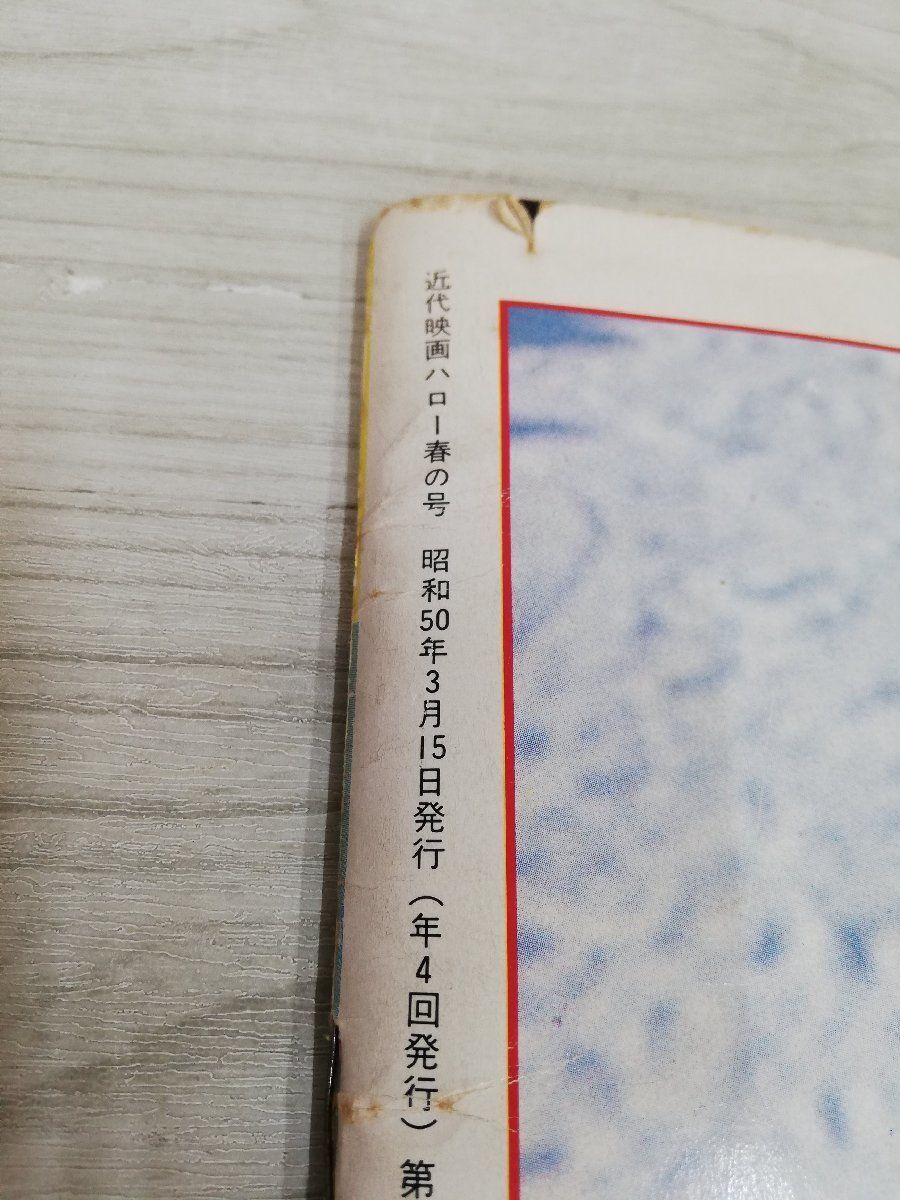 近代映画ハロー春の号　昭和50年3月15日発行（年4回発行）第